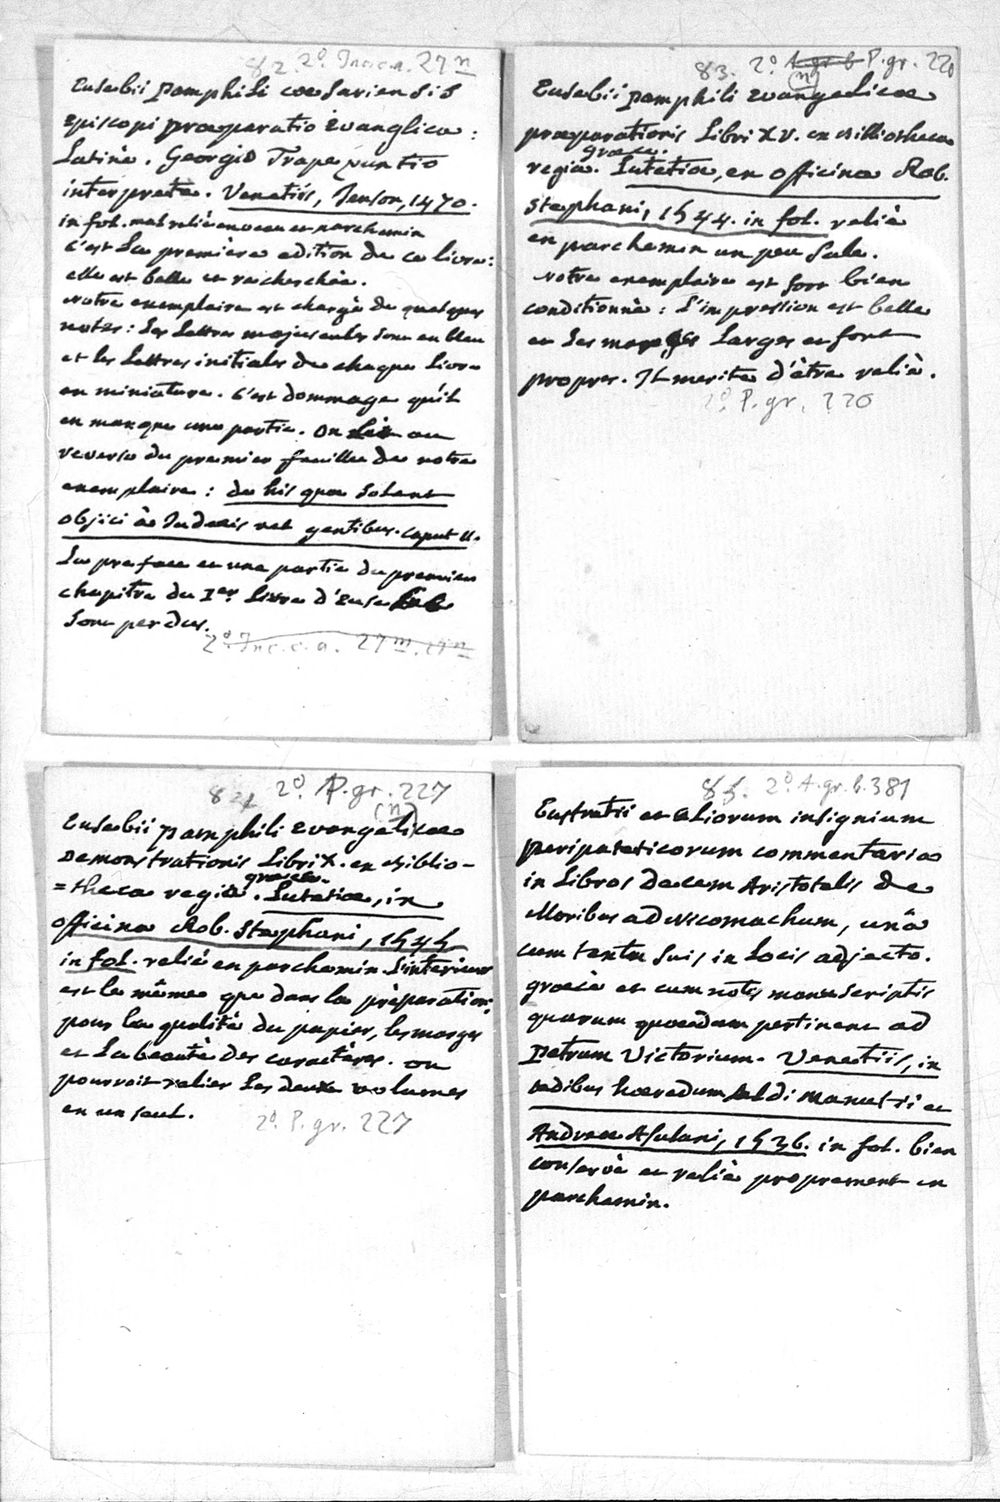 82. 2° Inc.c.a. 27 n
Eusebii pamphili caesariensis
Episcopi praeparatio Evanglica:
Latinè. Georgio Trapezuntio
interprete. Venetiis, Jenson, 1470.
in fol. mal relié en veau et parchemin
C'est la premiere edition de ce livre:
elle est belle et recherchée.
notre exemplaire est chargé de quelques
notes: les Lettres majuscules sont en bleu
et les Lettres initiales de chaque livre
en miniature. C'est dommage qu'il
en manque une partie. on lit au
reverse du premier feuillet de notre
exemplaire: de his quae solent
objici à Judaeis vel gentibus. caput II.
La preface et une partie du premier
chapitre du Ier Livre d'Eusebe
sont perdus.
2° Inc.c.a. 27 m
83. 2° A.gr.b P.gr. 220
(n)
Eusebii pamphili Evangelicae
praeparationis Libri XV. ex Bibliotheca
graece.
regia. Lutetiae, ex officina Rob.
Stephani, 1544. in fol. relié
en parchemin un peu sale.
notre exemplaire est fort bien
conditionné: L'impression est belle
et les marges larges et fort
propres. Il merite d'être relié.
2° P.gr. 220
84 2° P.gr. 227
(n)
Eusebii pamphili Evangelicae
Demonstrationis Libri X. ex Biblio-
graece.
=theca regia. Lutetiae, in
officina Rob. Stephani, 1545
in fol. relié en parchemin L'interieur
est le même que dans la préparation:
pour la qualité du papier, les marges
et la beauté des caractères. on
pourroit relier les deux volumes
en un seul.
2° P.gr. 227
85. 2° A.gr.b.381
Eustratii et aliorum insignium
peripateticorum commentaria
in Libros decem Aristotelis de
Moribus ad Nicomachum, unâ
cum textu suis in locis adjecto.
graecè et cum notis manuscriptis
quarum quaedam pertinent ad
Petrum Victorium. Venetiis, in
aedibus haeredum Aldi Manutii et
Andreae Asulani, 1536. in fol. bien
conservé et relié proprement en
parchemin.